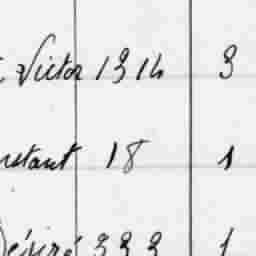 Victor 1314 3
nstant 18 1
Désiré 333 1